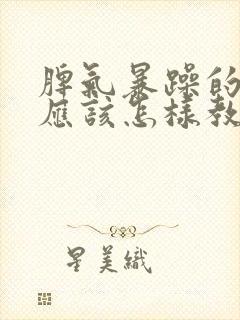 脾氣暴躁的
應該怎樣教
星美織